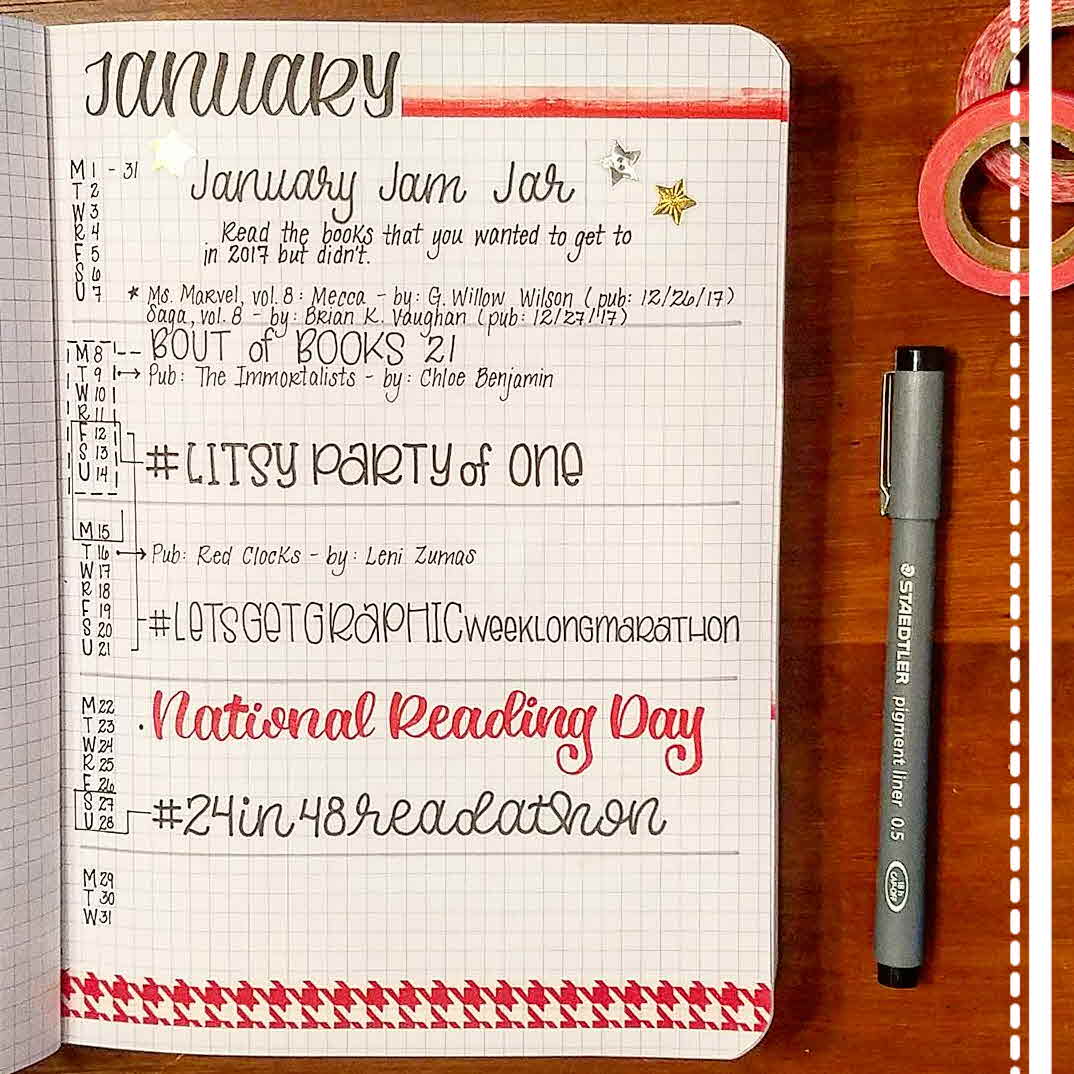 January
M 1 - 31
T 2
W 3
R 4
F 5
S 6
U 7
January Jam Jar
Read the books that you wanted to get to
in 2017 but didn't.
* Ms. Marvel, vol. 8: Mecca - by: G. Willow Wilson (pub: 12/26/17)
Saga, vol. 8 - by: Brian K. Vaughan (pub: 12/27/17)
M 8 -- BOUT of BOOKS 21
T 9 → Pub: The Immortalists - by: Chloe Benjamin
W 10
R 11
F 12
S 13
U 14
#LITSY PARTY of ONE
M 15
T 16 → Pub: Red Clocks - by: Leni Zumas
W 17
R 18
F 19
S 20
U 21
#LETSGETGRAPHICweeklongmarathon
M 22
T 23 · National Reading Day
W 24
R 25
F 26
S 27
U 28
#24in48readathon
M 29
T 30
W 31
STAEDTLER pigment liner 0.5